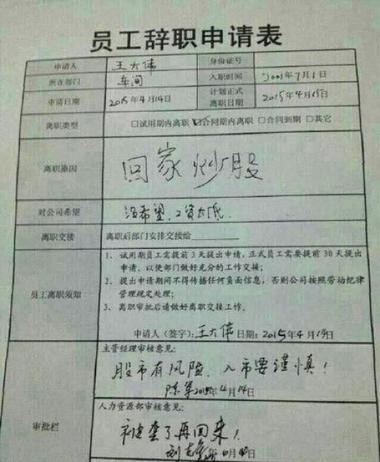 员工辞职申请表
申请人 王大伟 身份证号
所在部门 车间 入职时间 2001年7月1日
申请日期 2015年4月14日 计划正式离职日期 2015年4月15日
离职类型 □试用期内离职 ☑合同期内离职 □合同到期 □其它
离职原因 回家炒股
对公司希望 没希望,工资太低
离职交接 离职后部门安排交接给
员工离职须知
1、试用期员工需提前3天提出申请,正式员工需要提前30天提出
申请,以使部门做好充分的工作交接;
2、提出申请期间不得传播任何负面信息,否则公司按照劳动纪律
管理规定处理;
3、离职审批后请做好离职交接工作。
申请人(签字):王大伟 日期:2015年4月14日
审批栏
主管经理审核意见:
股市有风险,入市要谨慎!
2015年4月14日
人力资源部审核意见:
被套了再回来!